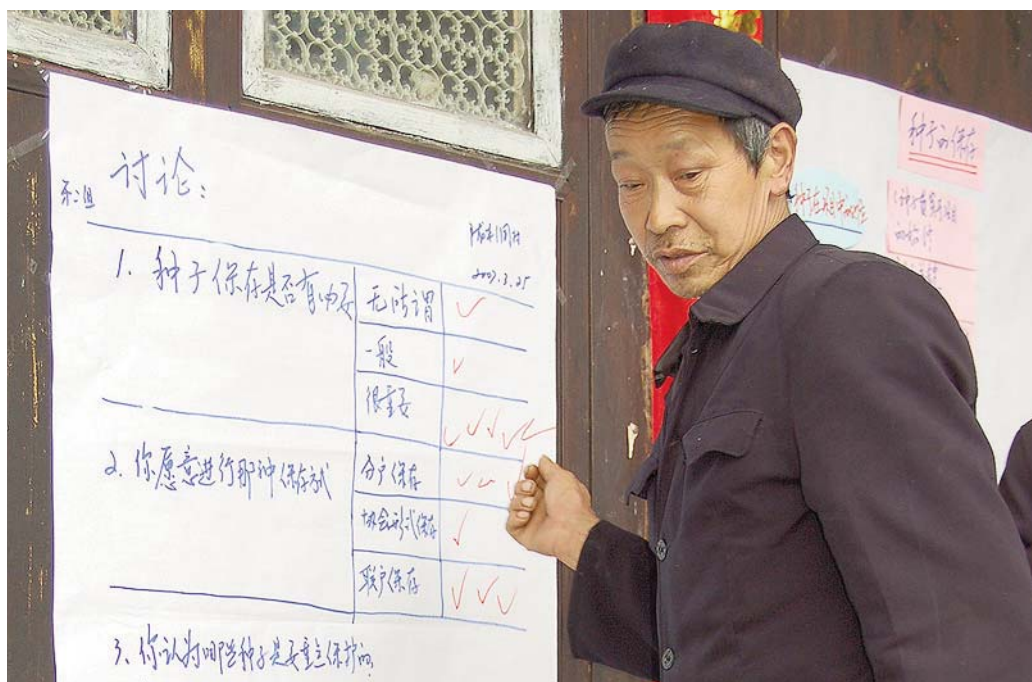 讨论:
第二组
2007.3.25
1. 种子保存是否有必要
无所谓 ✓
一般 ✓
很重要 ✓✓✓✓✓
2. 你愿意进行那种保存方式
分户保存 ✓✓✓
协会形式保存 ✓
联户保存 ✓✓✓
3、你认为哪些种子是要重点保护的
种子的保存